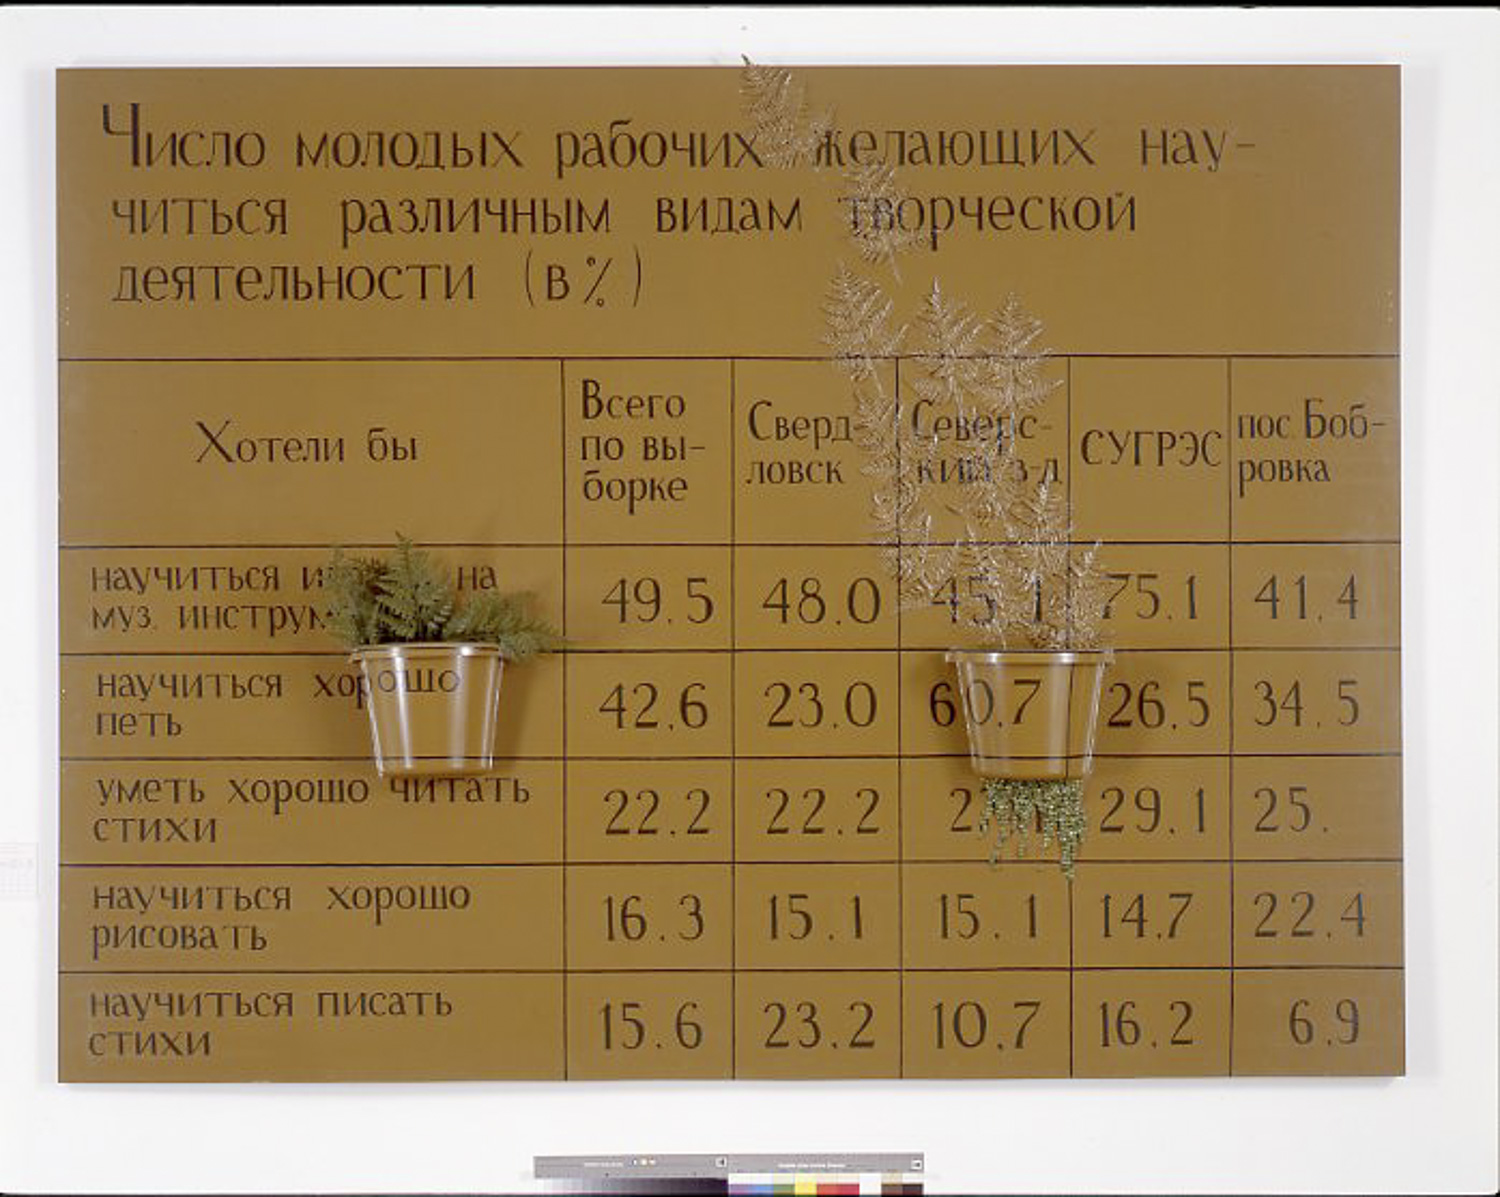 Число молодых рабочих желающих нау-
читься различным видам творческой
деятельности (в %)
Хотели бы
Всего
по вы-
борке
Сверд-
ловск
Северс-
кий з-д
СУГРЭС
пос. Боб-
ровка
научиться на
муз.
49.5 48.0 45.1 75.1 41.4
научиться хорошо
петь
42.6 23.0 60.7 26.5 34.5
уметь хорошо читать
стихи
22.2 22.2 29.1 25.
научиться хорошо
рисовать
16.3 15.1 15.1 14.7 22.4
научиться писать
стихи
15.6 23.2 10.7 16.2 6.9